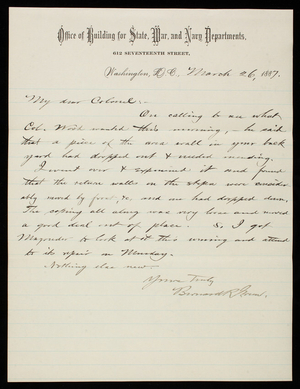 Office of Building for State, War, and Navy Departments,
612 SEVENTEENTH STREET,
Washington, D.C. March 26, 1887.
My dear Colonel:-
On calling to see what
Col. Wood wanted this morning, - he said
that a piece of the area wall in your back
yard had dropped out & needed mending.
I went over & examined it and found
that the return walls on the steps were consider-
ably moved by frost, &c, and one had dropped down.
The coping all along was very loose and moved
a good deal out of place. So, I got
to look at it this morning and attend
to its repair on Monday.
Nothing else new -
Yours truly
Bernard R. Green.